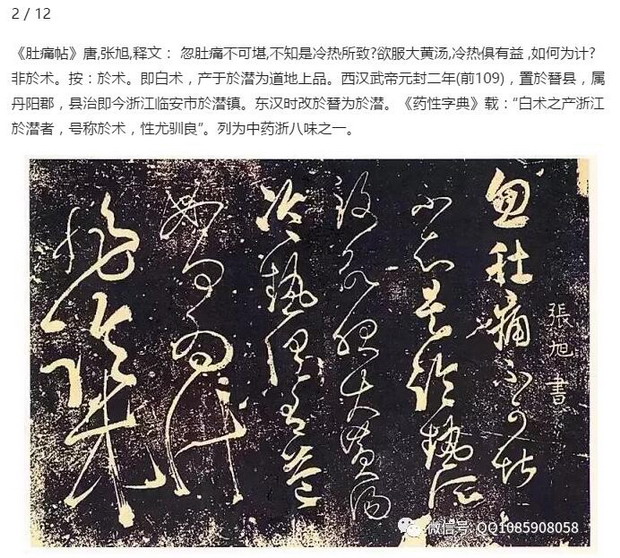 2 / 12
《肚痛帖》唐,张旭,释文： 忽肚痛不可堪,不知是冷热所致?欲服大黄汤,冷热俱有益 ,如何为计?
非於术。按：於术。即白术，产于於潜为道地上品。西汉武帝元封二年(前109)，置於替县，属
丹阳郡，县治即今浙江临安市於潜镇。东汉时改於替为於潜。《药性字典》载：“白术之产浙江
於潜者，号称於术，性尤驯良”。列为中药浙八味之一。
張旭書
忽肚痛不可堪
不知是冷熱所
致欲服大黃湯
冷熱俱有益
如何為計
非
微信号: QQ1085908058